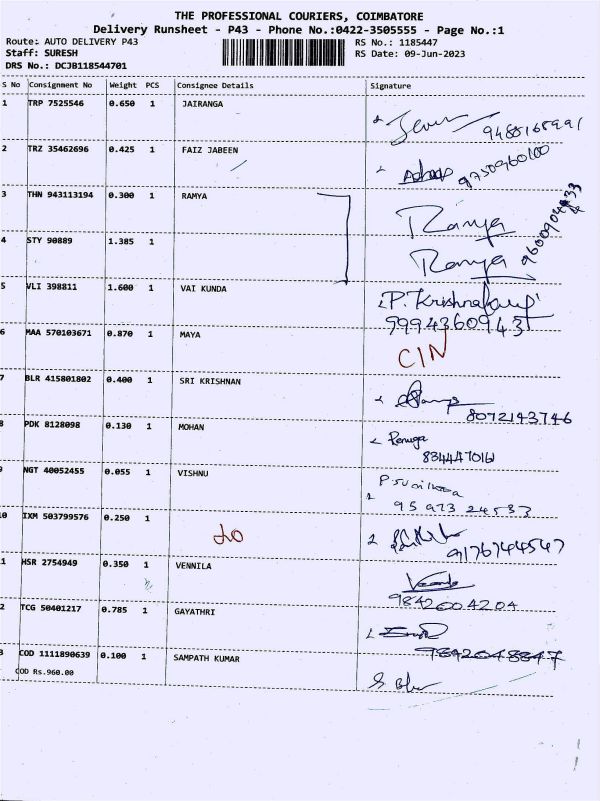 THE PROFESSIONAL COURIERS, COIMBATORE
Delivery Runsheet - P43 - Phone No.:0422-3505555 - Page No.:1
Route: AUTO DELIVERY P43 RS No.: 1185447
Staff: SURESH RS Date: 09-Jun-2023
DRS No.: DCJB118544701
S No Consignment No Weight PCS Consignee Details Signature
1 TRP 7525546 0.650 1 JAIRANGA
2 TRZ 35462696 0.425 1 FAIZ JABEEN
9750960100
3 THN 943113194 0.300 1 RAMYA Ramya
9600904833
4 STY 90889 1.385 1 Ramya
5 VLI 398811 1.600 1 VAI KUNDA
9994360943
6 MAA 570103671 0.870 1 MAYA CIN
7 BLR 415801802 0.400 1 SRI KRISHNAN
8072143746
8 PDK 8128098 0.130 1 MOHAN Renuga
9 NGT 40052455 0.055 1 VISHNU
95 973 24533
0 IXM 503799576 0.250 1
9176744547
1 HSR 2754949 0.350 1 VENNILA
9842004204
2 TCG 50401217 0.785 1 GAYATHRI
9842048847
3 COD 1111890639 0.100 1 SAMPATH KUMAR
COD Rs.960.00